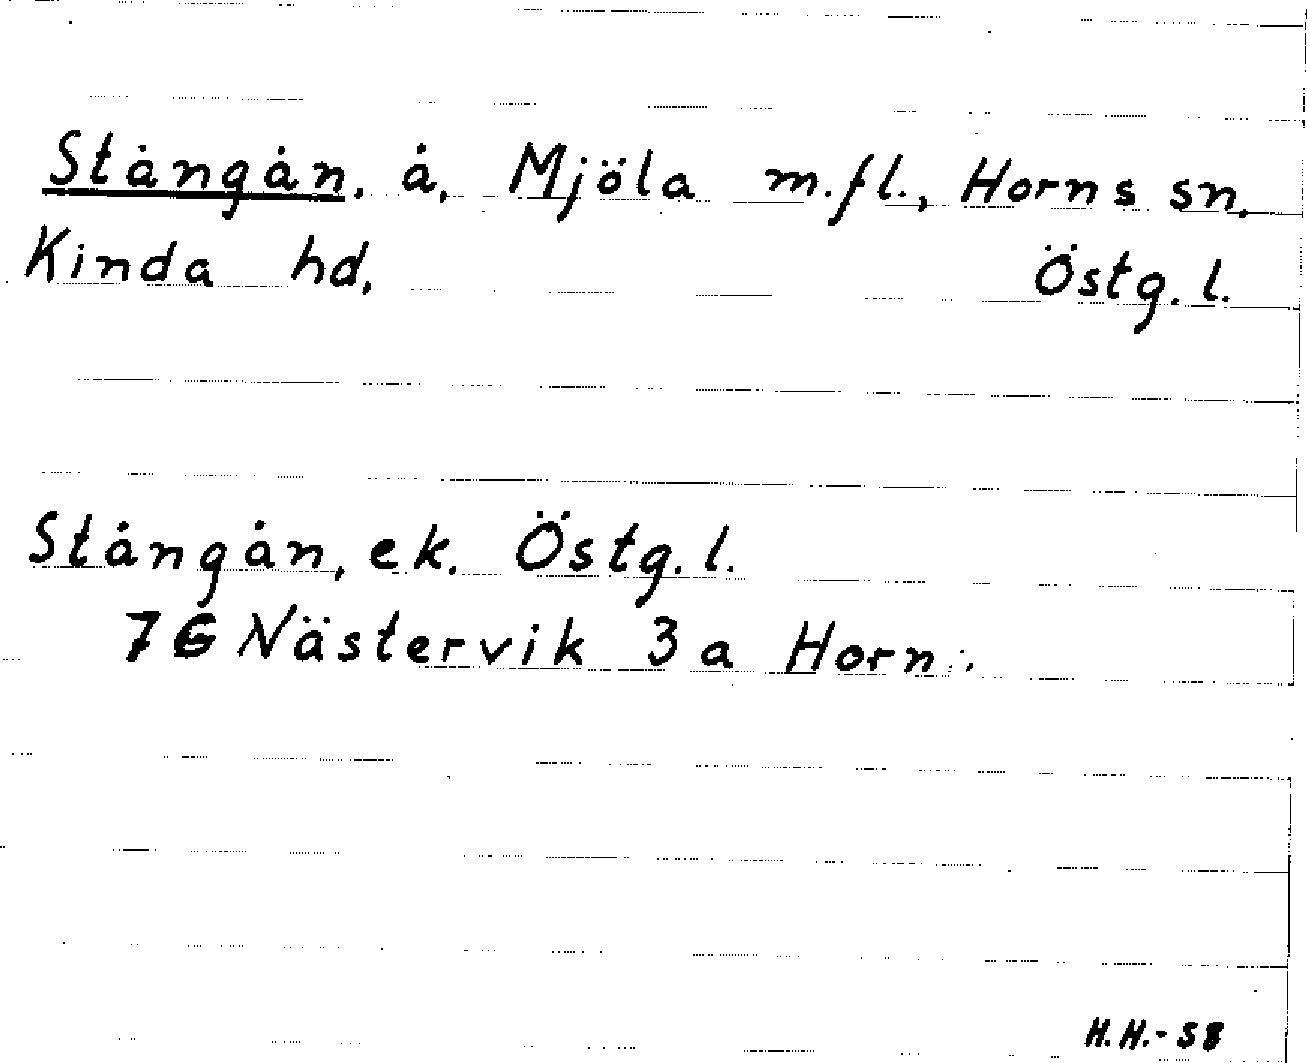 Stångån, å, Mjöla m.fl., Horns sn,
Kinda hd, Östg. l.
Stångån, ek. Östg. l.
7G Nästervik 3a Horn.
H.H.-58